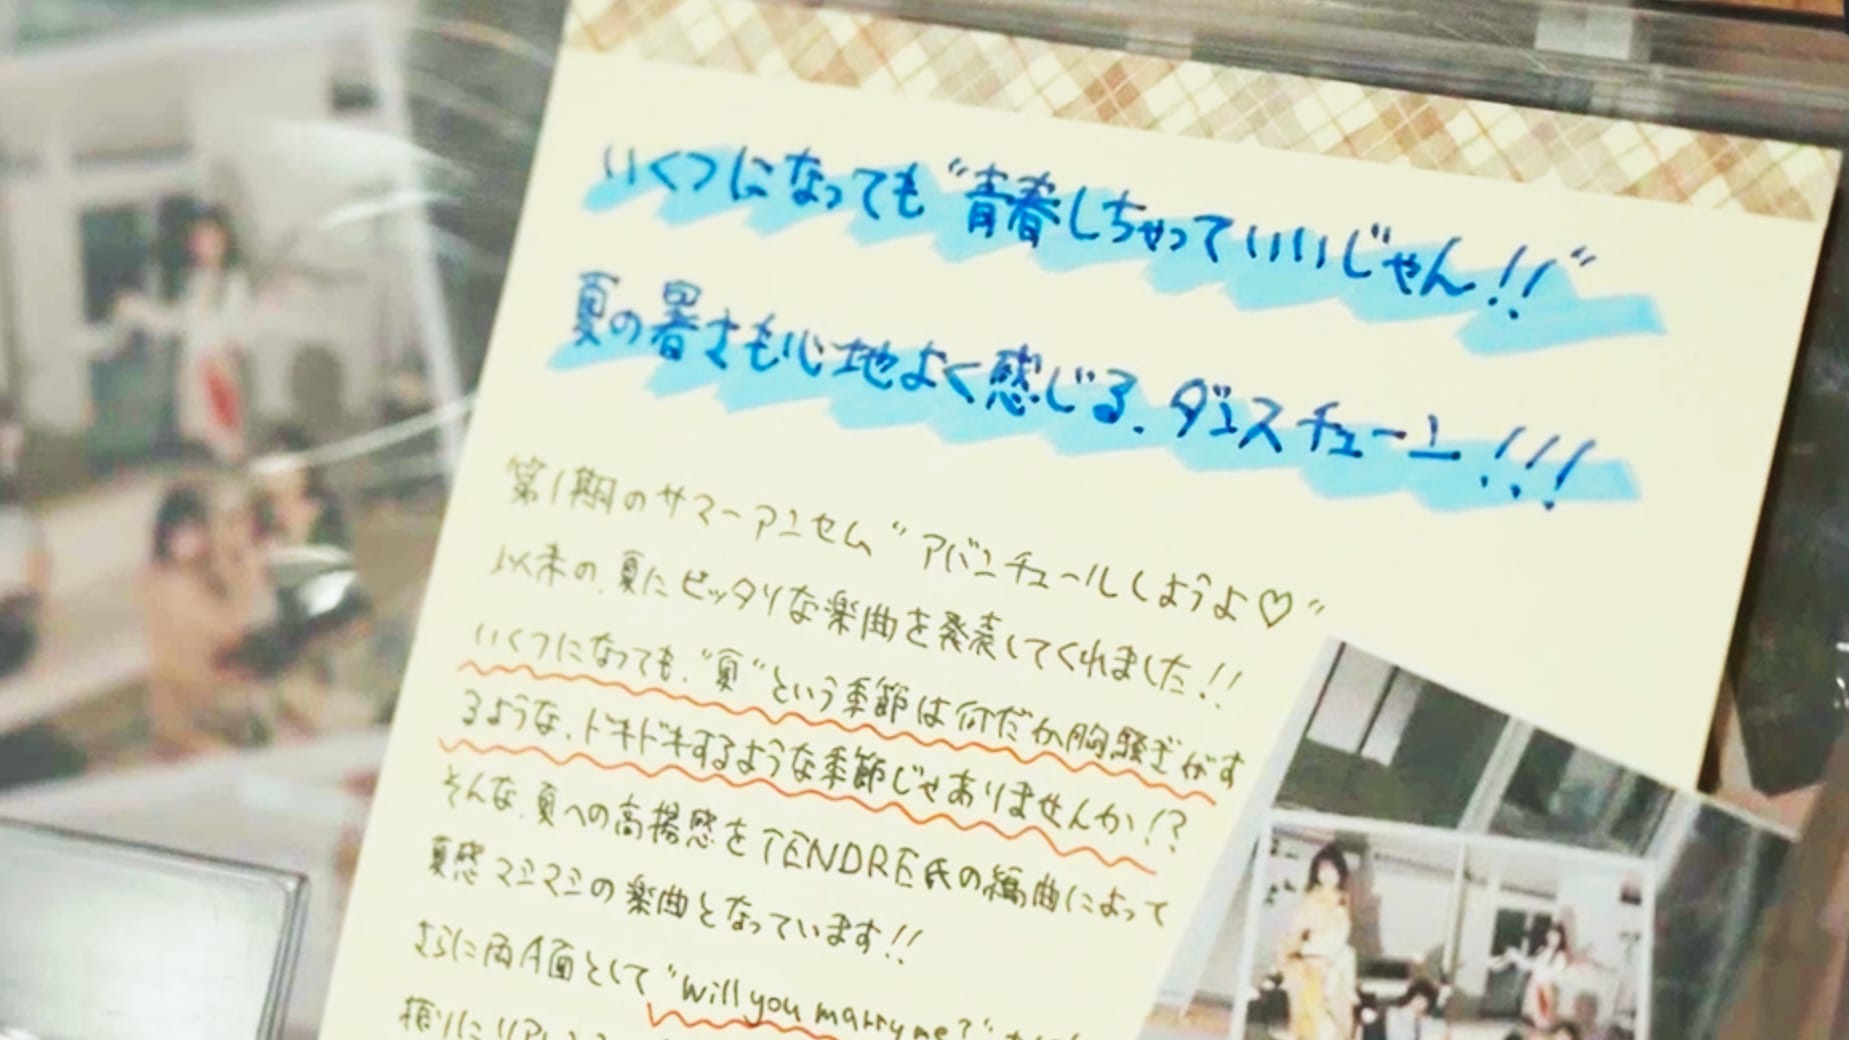 いくつになっても“青春しちゃっていいじゃん!!”
夏の暑さも心地よく感じる、ダンスチューン!!!
第1期のサマーアンセム“アバンチュールしようよ♡”
以来の、夏にピッタリな楽曲を発表してくれました!!
いくつになっても、“夏”という季節は何だか胸騒ぎがす
るような、ドキドキするような季節じゃありませんか!?
そんな、夏への高揚感をTENDRE氏の編曲によって
夏感マシマシの楽曲となっています!!
さらに両A面として“Will you marry me?”